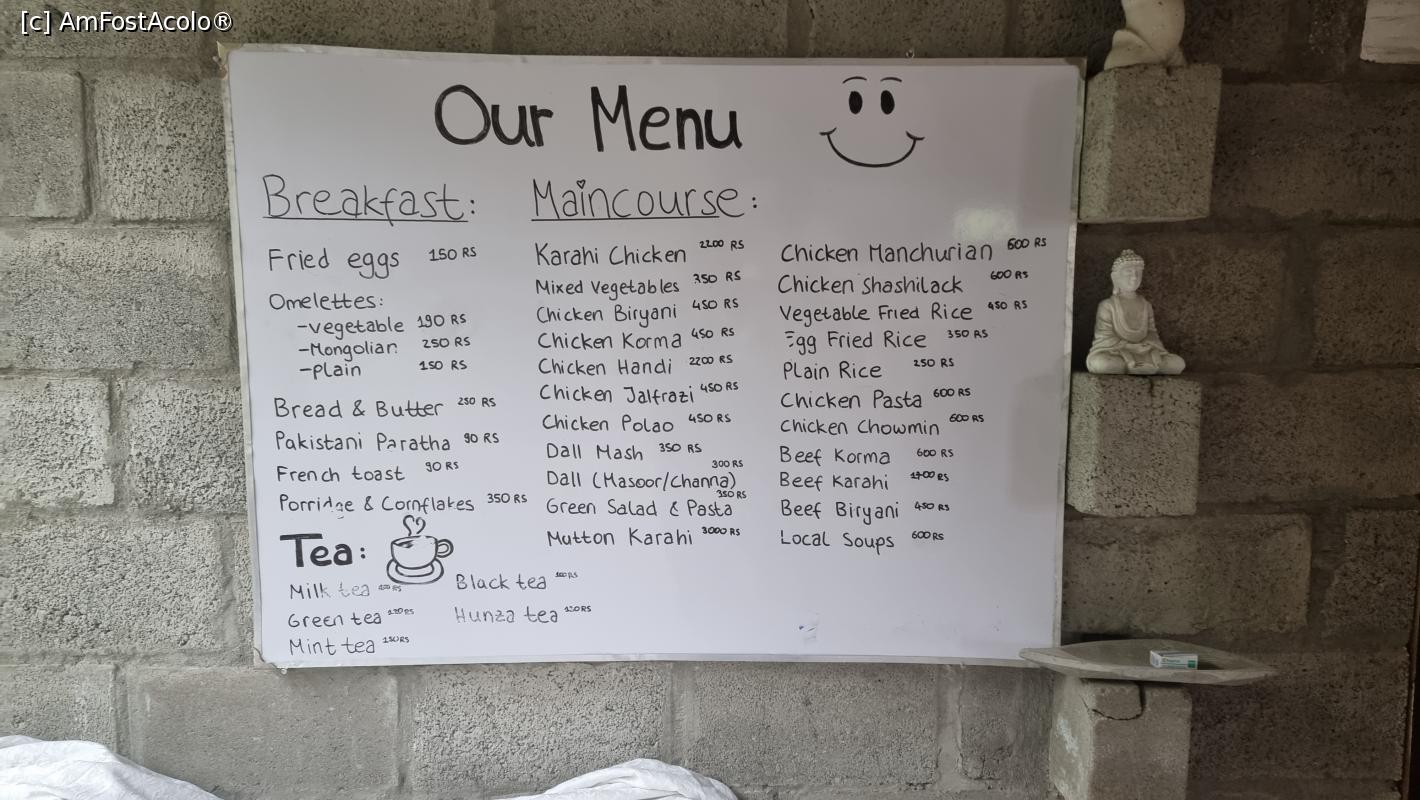 [c] AmFostAcolo®
Our Menu
Breakfast:
Fried eggs 150 RS
Omelettes:
-vegetable 190 RS
-Mongolian 250 RS
-plain 150 RS
Bread & Butter 250 RS
Pakistani Paratha 90 RS
French toast 90 RS
Porridge & Cornflakes 350 RS
Tea:
Milk tea
Green tea 120 RS
Mint tea 150 RS
Black tea 100 RS
Hunza tea 120 RS
Maincourse:
Karahi Chicken 2200 RS
Mixed Vegetables 350 RS
Chicken Biryani 450 RS
Chicken Korma 450 RS
Chicken Handi 2200 RS
Chicken Jalfrazi 450 RS
Chicken Polao 450 RS
Dall Mash 350 RS
Dall (Masoor/Channa) 300 RS
Green Salad & Pasta 350 RS
Mutton Karahi 3000 RS
Chicken Manchurian 600 RS
Chicken Shashilack 600 RS
Vegetable Fried Rice 450 RS
Egg Fried Rice 350 RS
Plain Rice 250 RS
Chicken Pasta 600 RS
Chicken Chowmin 600 RS
Beef Korma 600 RS
Beef Karahi
Beef Biryani 450 RS
Local Soups 600 RS